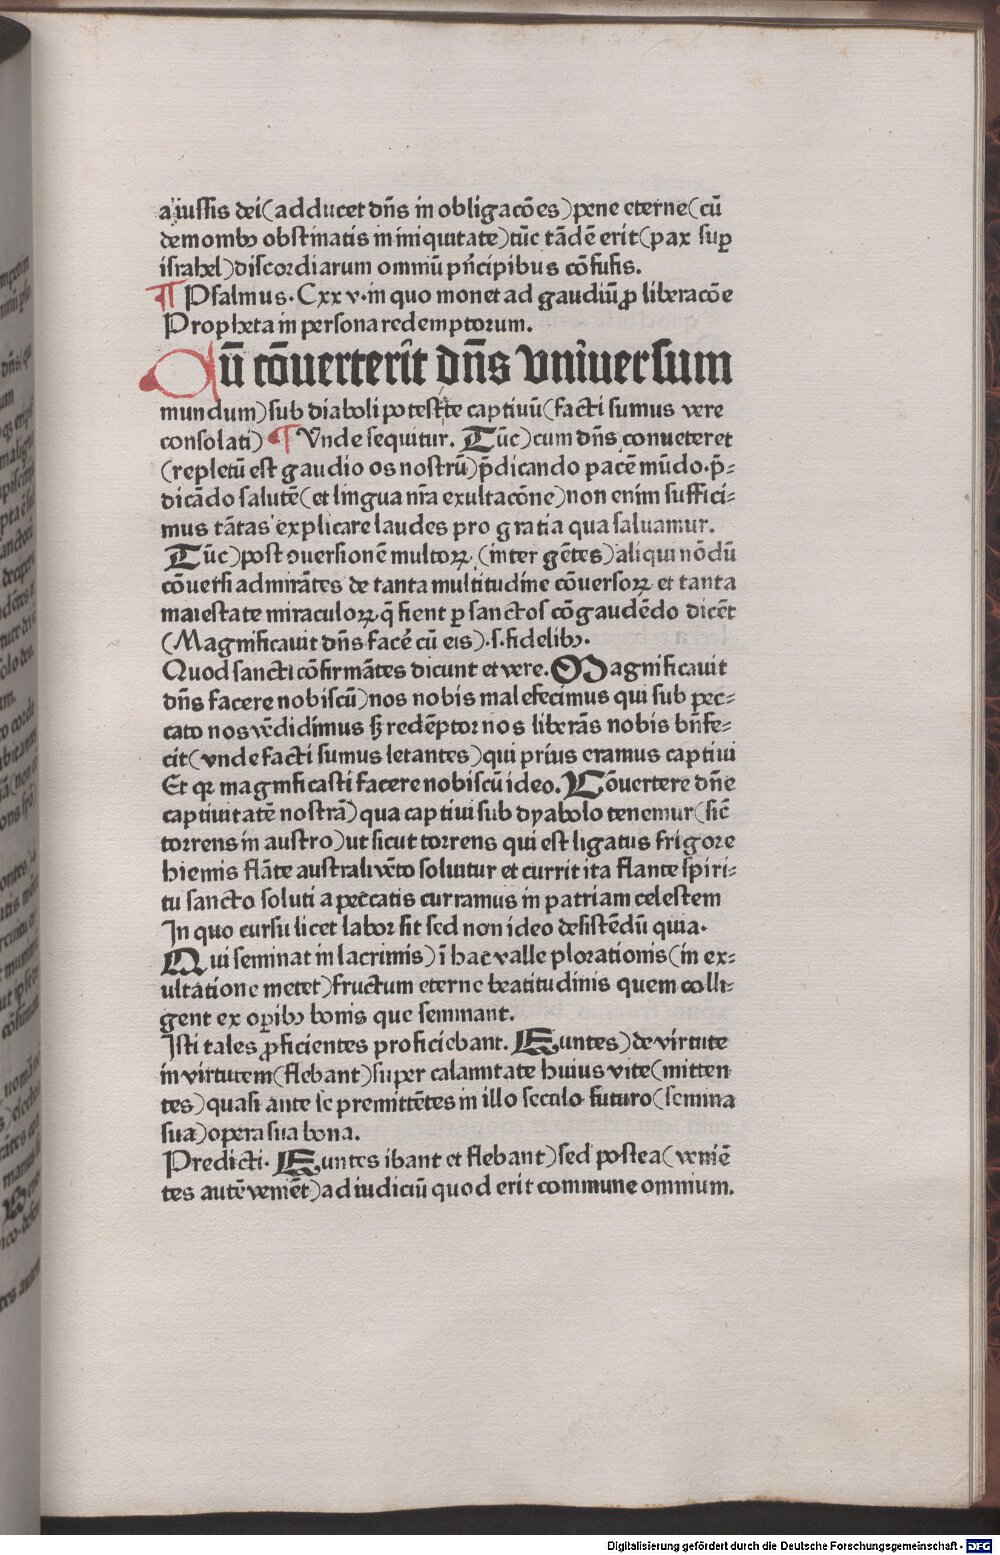 a iussis dei (adducet dn̄s in obligacōes) pene eterne (cū
demonibꝫ obstinatis in iniquitate) tūc tādē erit (pax suꝑ
israhel) discordiarum omniū pn̄cipibus cōfusis.
¶ Psalmus. Cxxv. in quo monet ad gaudiū ꝓ liberacōe
Propheta in persona redemptorum.
Cū cōuerterit dn̄s vniuersum
mundum) sub diaboli potestate captiuū (facti sumus vere
consolati) ¶ Vnde sequitur. Tūc) cum dn̄s conueteret
(repletū est gaudio os nostrū) p̄dicando pacē mūdo. p̄⸗
dicādo salutē (et lingua nr̄a exultacōne) non enim suffici⸗
mus tātas explicare laudes pro gratia qua saluamur.
Tūc) post ↄuersionē multoꝝ. (inter gētes) aliqui nōdū
cōuersi admirātes de tanta multitudine cōuersoꝝ et tanta
maiestate miraculoꝝ. q̄ fient ꝑ sanctos cōgaudēdo dicēt
(Magnificauit dn̄s facē cū eis). s. fidelibꝫ.
Quod sancti cōfirmātes dicunt et vere. Magnificauit
dn̄s facere nobiscū) nos nobis malefecimus qui sub pec⸗
cato nos vēdidimus sꝫ redēptor nos liberās nobis bn̄fe⸗
cit (vnde facti sumus letantes) qui prius eramus captiui
Et qꝛ magnificasti facere nobiscū ideo. Cōuertere dn̄e
captiuitatē nostrā) qua captiui sub dyabolo tenemur (sic̄
torrens in austro) ut sicut torrens qui est ligatus frigore
hiemis flāte australi vēto soluitur et currit ita flante spiri⸗
tu sancto soluti a peccatis curramus in patriam celestem
In quo cursu licet labor sit sed non ideo desistēdū quia.
Qui seminat in lacrimis) ī hac valle plorationis (in ex⸗
ultatione metet) fructum eterne beatitudinis quem colli⸗
gent ex oꝑibꝫ bonis que seminant.
Isti tales ꝓficientes proficiebant. Euntes) de virtute
in virtutem (flebant) super calamitate huius vite (mitten
tes) quasi ante se premittētes in illo seculo futuro (semina
sua) opera sua bona.
Predicti. Euntes ibant et flebant) sed postea (veniē
tes autē veniēt) ad iudiciū quod erit commune omnium.
Digitalisierung gefördert durch die Deutsche Forschungsgemeinschaft - DFG